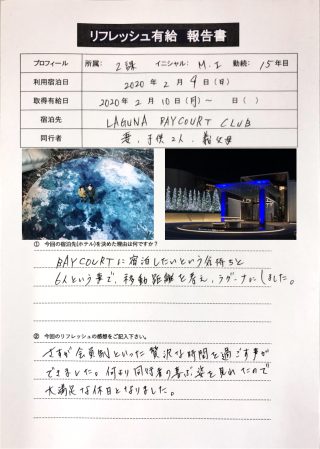 リフレッシュ有給 報告書
プロフィール 所属: 2課 イニシャル: M.I 勤続: 15年目
利用宿泊日 2020年 2月 9日(日)
取得有給日 2020年 2月 10日(月)〜 日( )
宿泊先 LAGUNA BAYCOURT CLUB
同行者 妻、子供2人、義父母
① 今回の宿泊先(ホテル)を決めた理由は何ですか?
BAYCOURTに宿泊したいという気持ちと
6人という事で、移動距離を考え、ラグーナにしました。
② 今回のリフレッシュの感想をご記入下さい。
さすが会員制といった贅沢な時間を過ごす事が
できました。何より同行者の喜ぶ姿を見れたので
大満足な休日となりました。